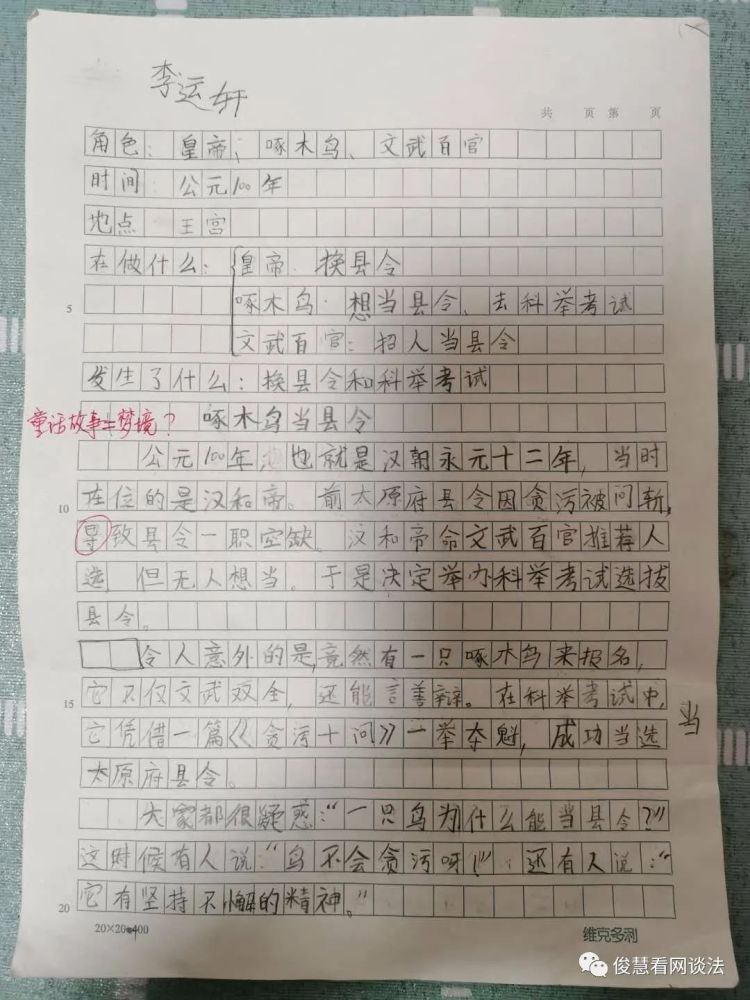 李运轩
共 页 第 页
角色：皇帝、啄木鸟、文武百官
时间：公元100年
地点 王宫
在做什么：皇帝：换县令
5 啄木鸟：想当县令、去科举考试
文武百官：招人当县令
发生了什么：换县令和科举考试
童话故事=梦境？ 啄木鸟当县令
公元100年，也就是汉朝永元十二年，当时
10 在位的是汉和帝。前太原府县令因贪污被问斩，
导致县令一职空缺。汉和帝命文武百官推荐人
选，但无人想当。于是决定举办科举考试选拔
县令。
令人意外的是，竟然有一只啄木鸟来报名，
15 它不仅文武双全，还能言善辩。在科举考试中，
它凭借一篇《贪污十问》一举夺魁，成功当选
太原府县令。
大家都很疑惑：“一只鸟为什么能当县令？”
这时候有人说：“鸟不会贪污呀！”还有人说：“
20 它有坚持不懈的精神。”
20×20=400 维克多利
俊慧看网谈法